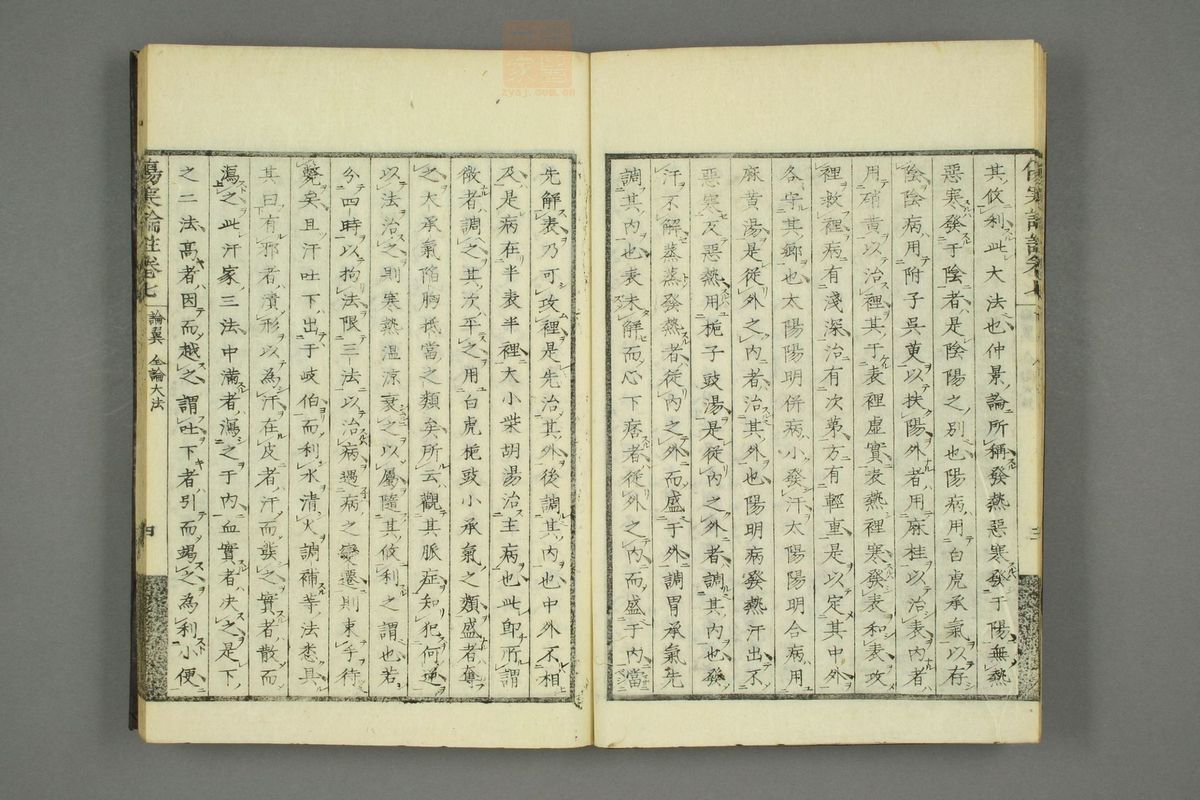 其攸利此大法也仲景論所稱發熱惡寒發于陽無熱
惡寒發于陰者是陰陽之別也陽病用白虎承氣以存
陰陰病用附子吳萸以扶陽外者用麻桂以治表內者
用硝黃以治裡其于表裡虛實表熱裡寒發表和表攻
裡救裡病有淺深治有次第方有輕重是以定其中外
各守其鄉也太陽陽明併病小發汗太陽陽明合病用
麻黃湯是從外之內者治其外也陽明病發熱汗出不
惡寒反惡熱用梔子豉湯是從內之外者調其內也發
汗不解蒸蒸發熱者從內之外而盛于外調胃承氣先
調其內也表未解而心下痞者從外之內而盛于內當
先解表乃可攻裡是先治其外後調其內也中外不相
及是病在半表半裡大小柴胡湯治主病也此即所謂
微者調之其次平之用白虎梔豉小承氣之類盛者奪
之大承氣陷胸抵當之類矣所云觀其脈症知犯何逆
以法治之則寒熱溫涼衰之以屬隨其攸利之謂也若
分四時以拘法限三法以治病遇病之變遷則束手待
斃矣且汗吐下出于岐伯而利水清火調補等法悉具
其曰有邪者漬形以為汗在皮者汗而發之實者散而
瀉之此汗家三法中滿者瀉之于內血實者決之是下
之二法高者因而越之謂吐下者引而竭之為利小便
傷寒論註卷七
論翼 全論大法
四
三
zysj.com.cn